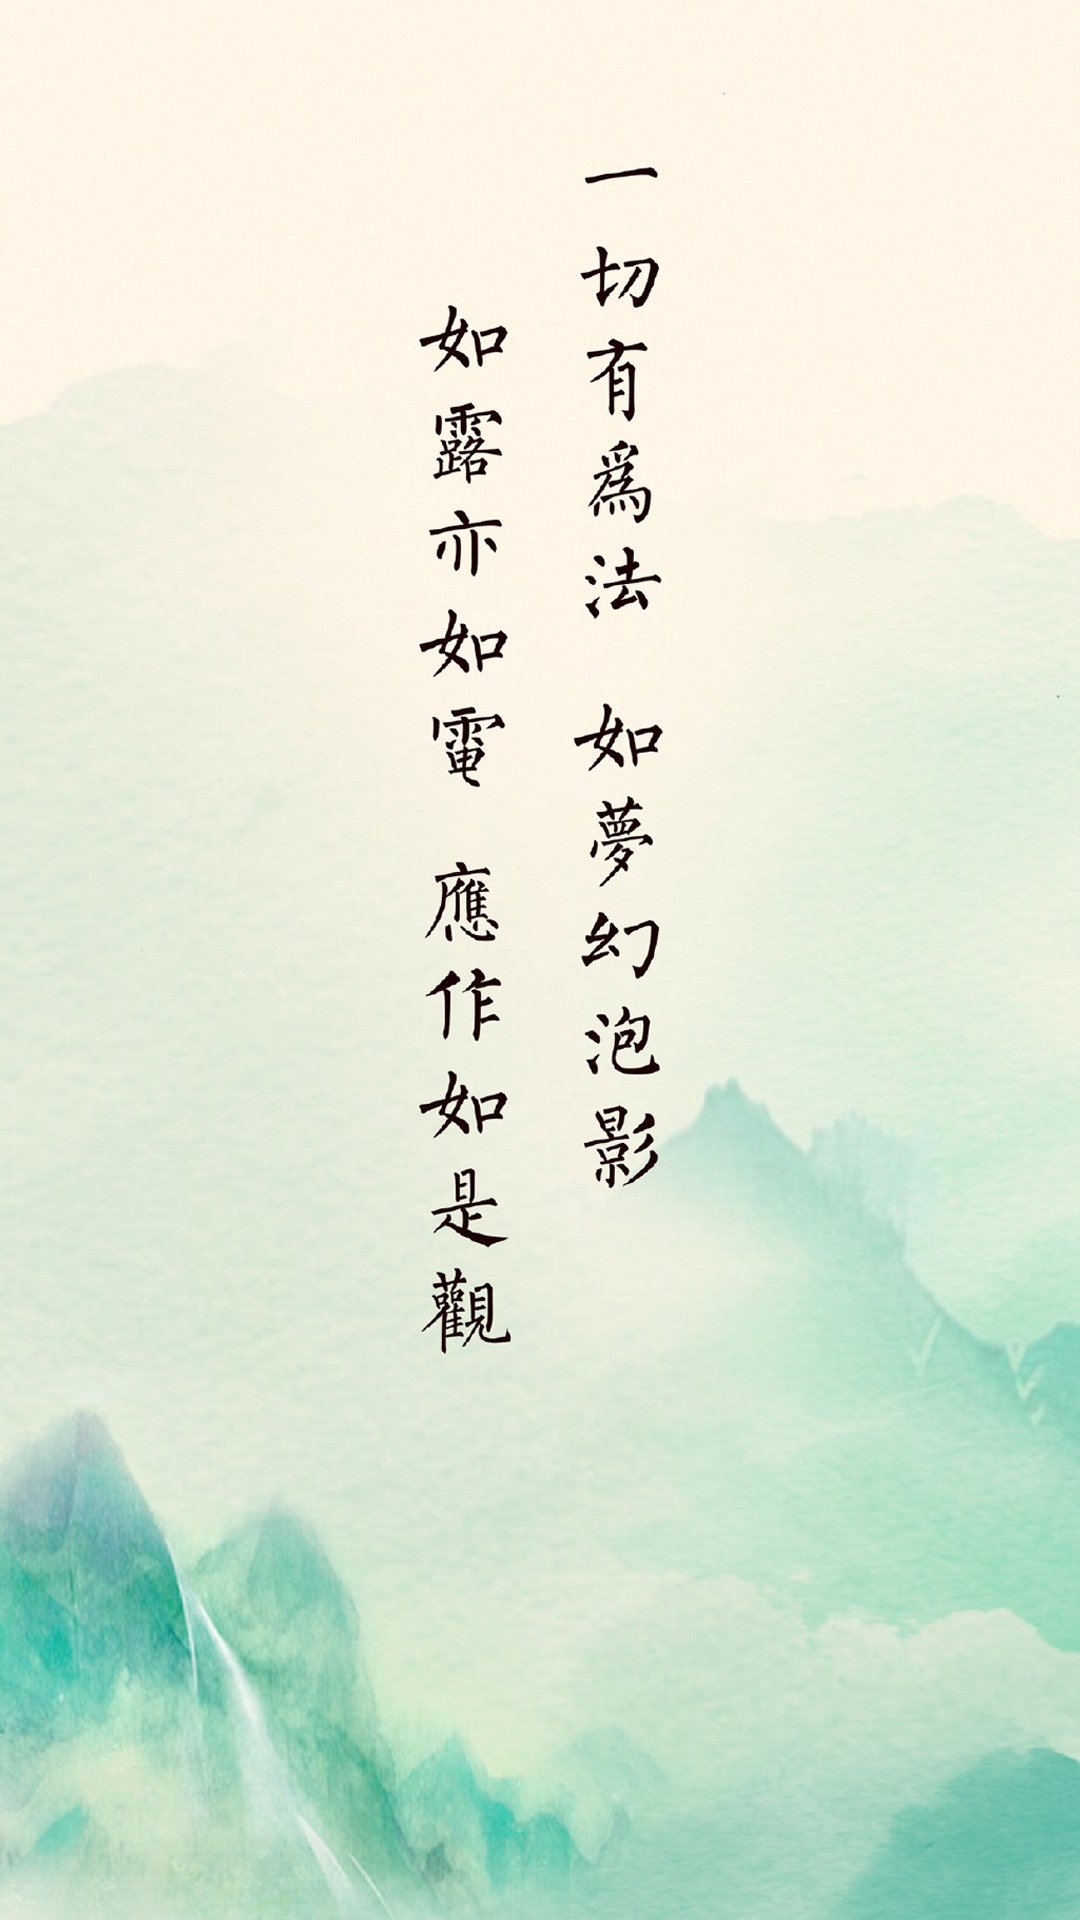 一切有爲法 如夢幻泡影
如露亦如電 應作如是觀